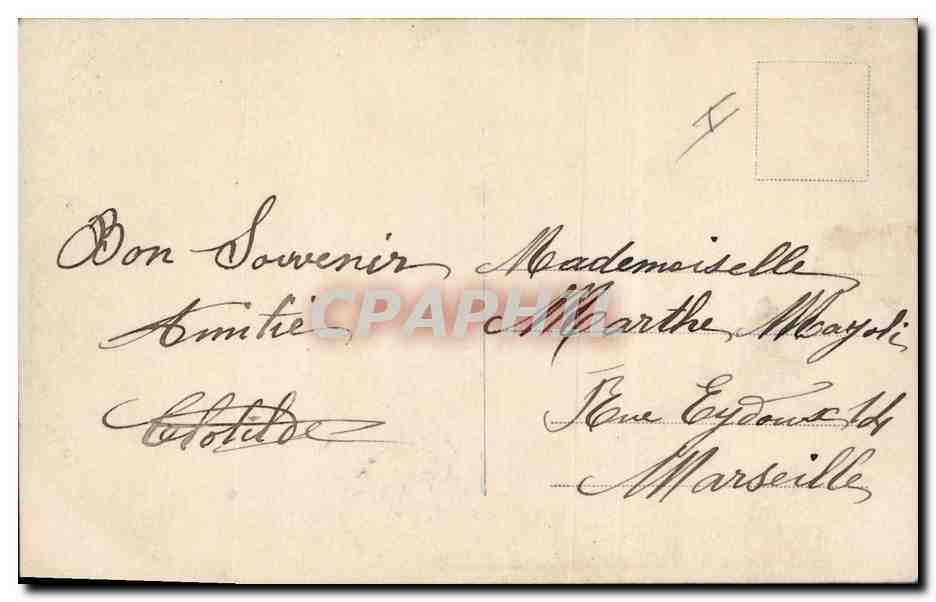 Bon Souvenir
Amitié
Clotilde
Mademoiselle
Marthe Mayoli
Rue Eydoux 14
Marseille
CPAPHIL